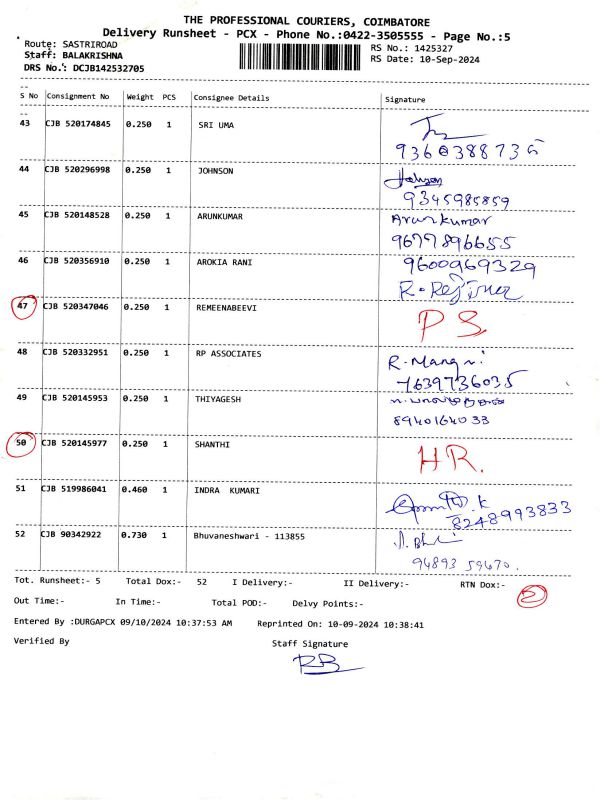 THE PROFESSIONAL COURIERS, COIMBATORE
Delivery Runsheet - PCX - Phone No.:0422-3505555 - Page No.:5
Route: SASTRIROAD
RS No.: 1425327
Staff: BALAKRISHNA
RS Date: 10-Sep-2024
DRS No.: DCJB142532705
S No Consignment No Weight PCS Consignee Details Signature
43 CJB 520174845 0.250 1 SRI UMA
9360388736
44 CJB 520296998 0.250 1 JOHNSON Johnson
9345985859
45 CJB 520148528 0.250 1 ARUNKUMAR Arunkumar
9677896655
46 CJB 520356910 0.250 1 AROKIA RANI 9600969329
47 CJB 520347046 0.250 1 REMEENABEEVI PS
48 CJB 520332951 0.250 1 RP ASSOCIATES
7639736035
49 CJB 520145953 0.250 1 THIYAGESH
8940164033
50 CJB 520145977 0.250 1 SHANTHI HR.
51 CJB 519986041 0.460 1 INDRA KUMARI
8248993833
52 CJB 90342922 0.730 1 Bhuvaneshwari - 113855
94893 59670.
Tot. Runsheet:- 5 Total Dox:- 52 I Delivery:- II Delivery:- RTN Dox:- 2
Out Time:- In Time:- Total POD:- Delvy Points:-
Entered By :DURGAPCX 09/10/2024 10:37:53 AM Reprinted On: 10-09-2024 10:38:41
Verified By Staff Signature
RB